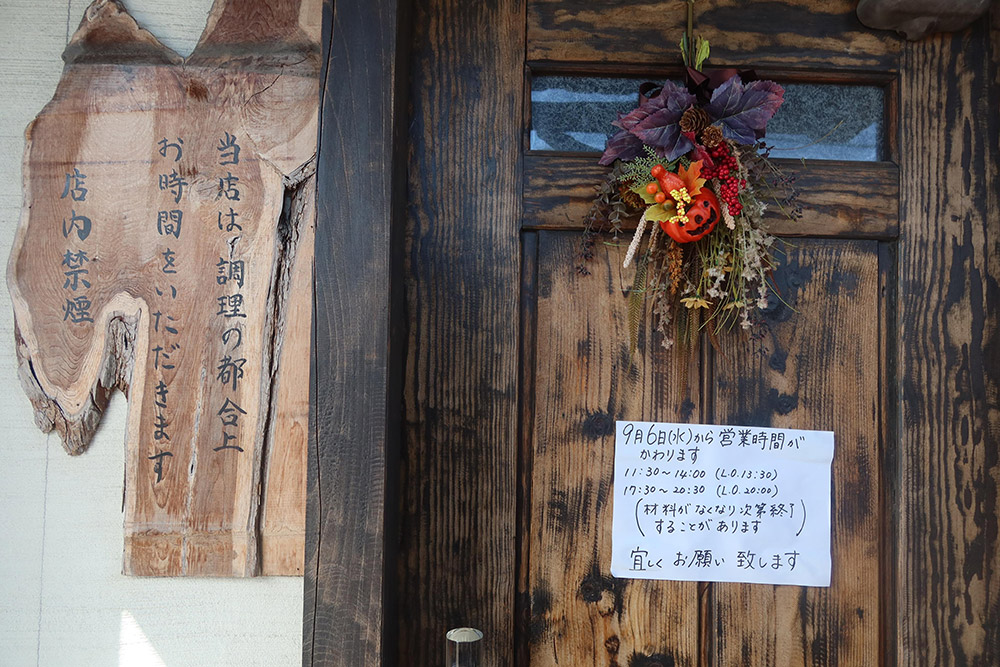 当店は、調理の都合上
お時間をいただきます
店内禁煙
9月6日(水)から営業時間が
かわります
11:30〜14:00 (L.O.13:30)
17:30〜20:30 (L.O.20:00)
(材料がなくなり次第終了
することがあります)
宜しくお願い致します